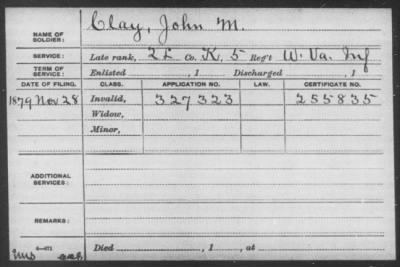 NAME OF SOLDIER: Clay, John M.
SERVICE: Late rank, 2 L Co. K, 5 Reg't W. Va. Inf
TERM OF SERVICE: Enlisted , 1 Discharged , 1
DATE OF FILING. CLASS. APPLICATION NO. LAW. CERTIFICATE NO.
1879 Nov 28 Invalid, 327323 255835
Widow,
Minor,
ADDITIONAL SERVICES:
REMARKS:
Died , 1 , at